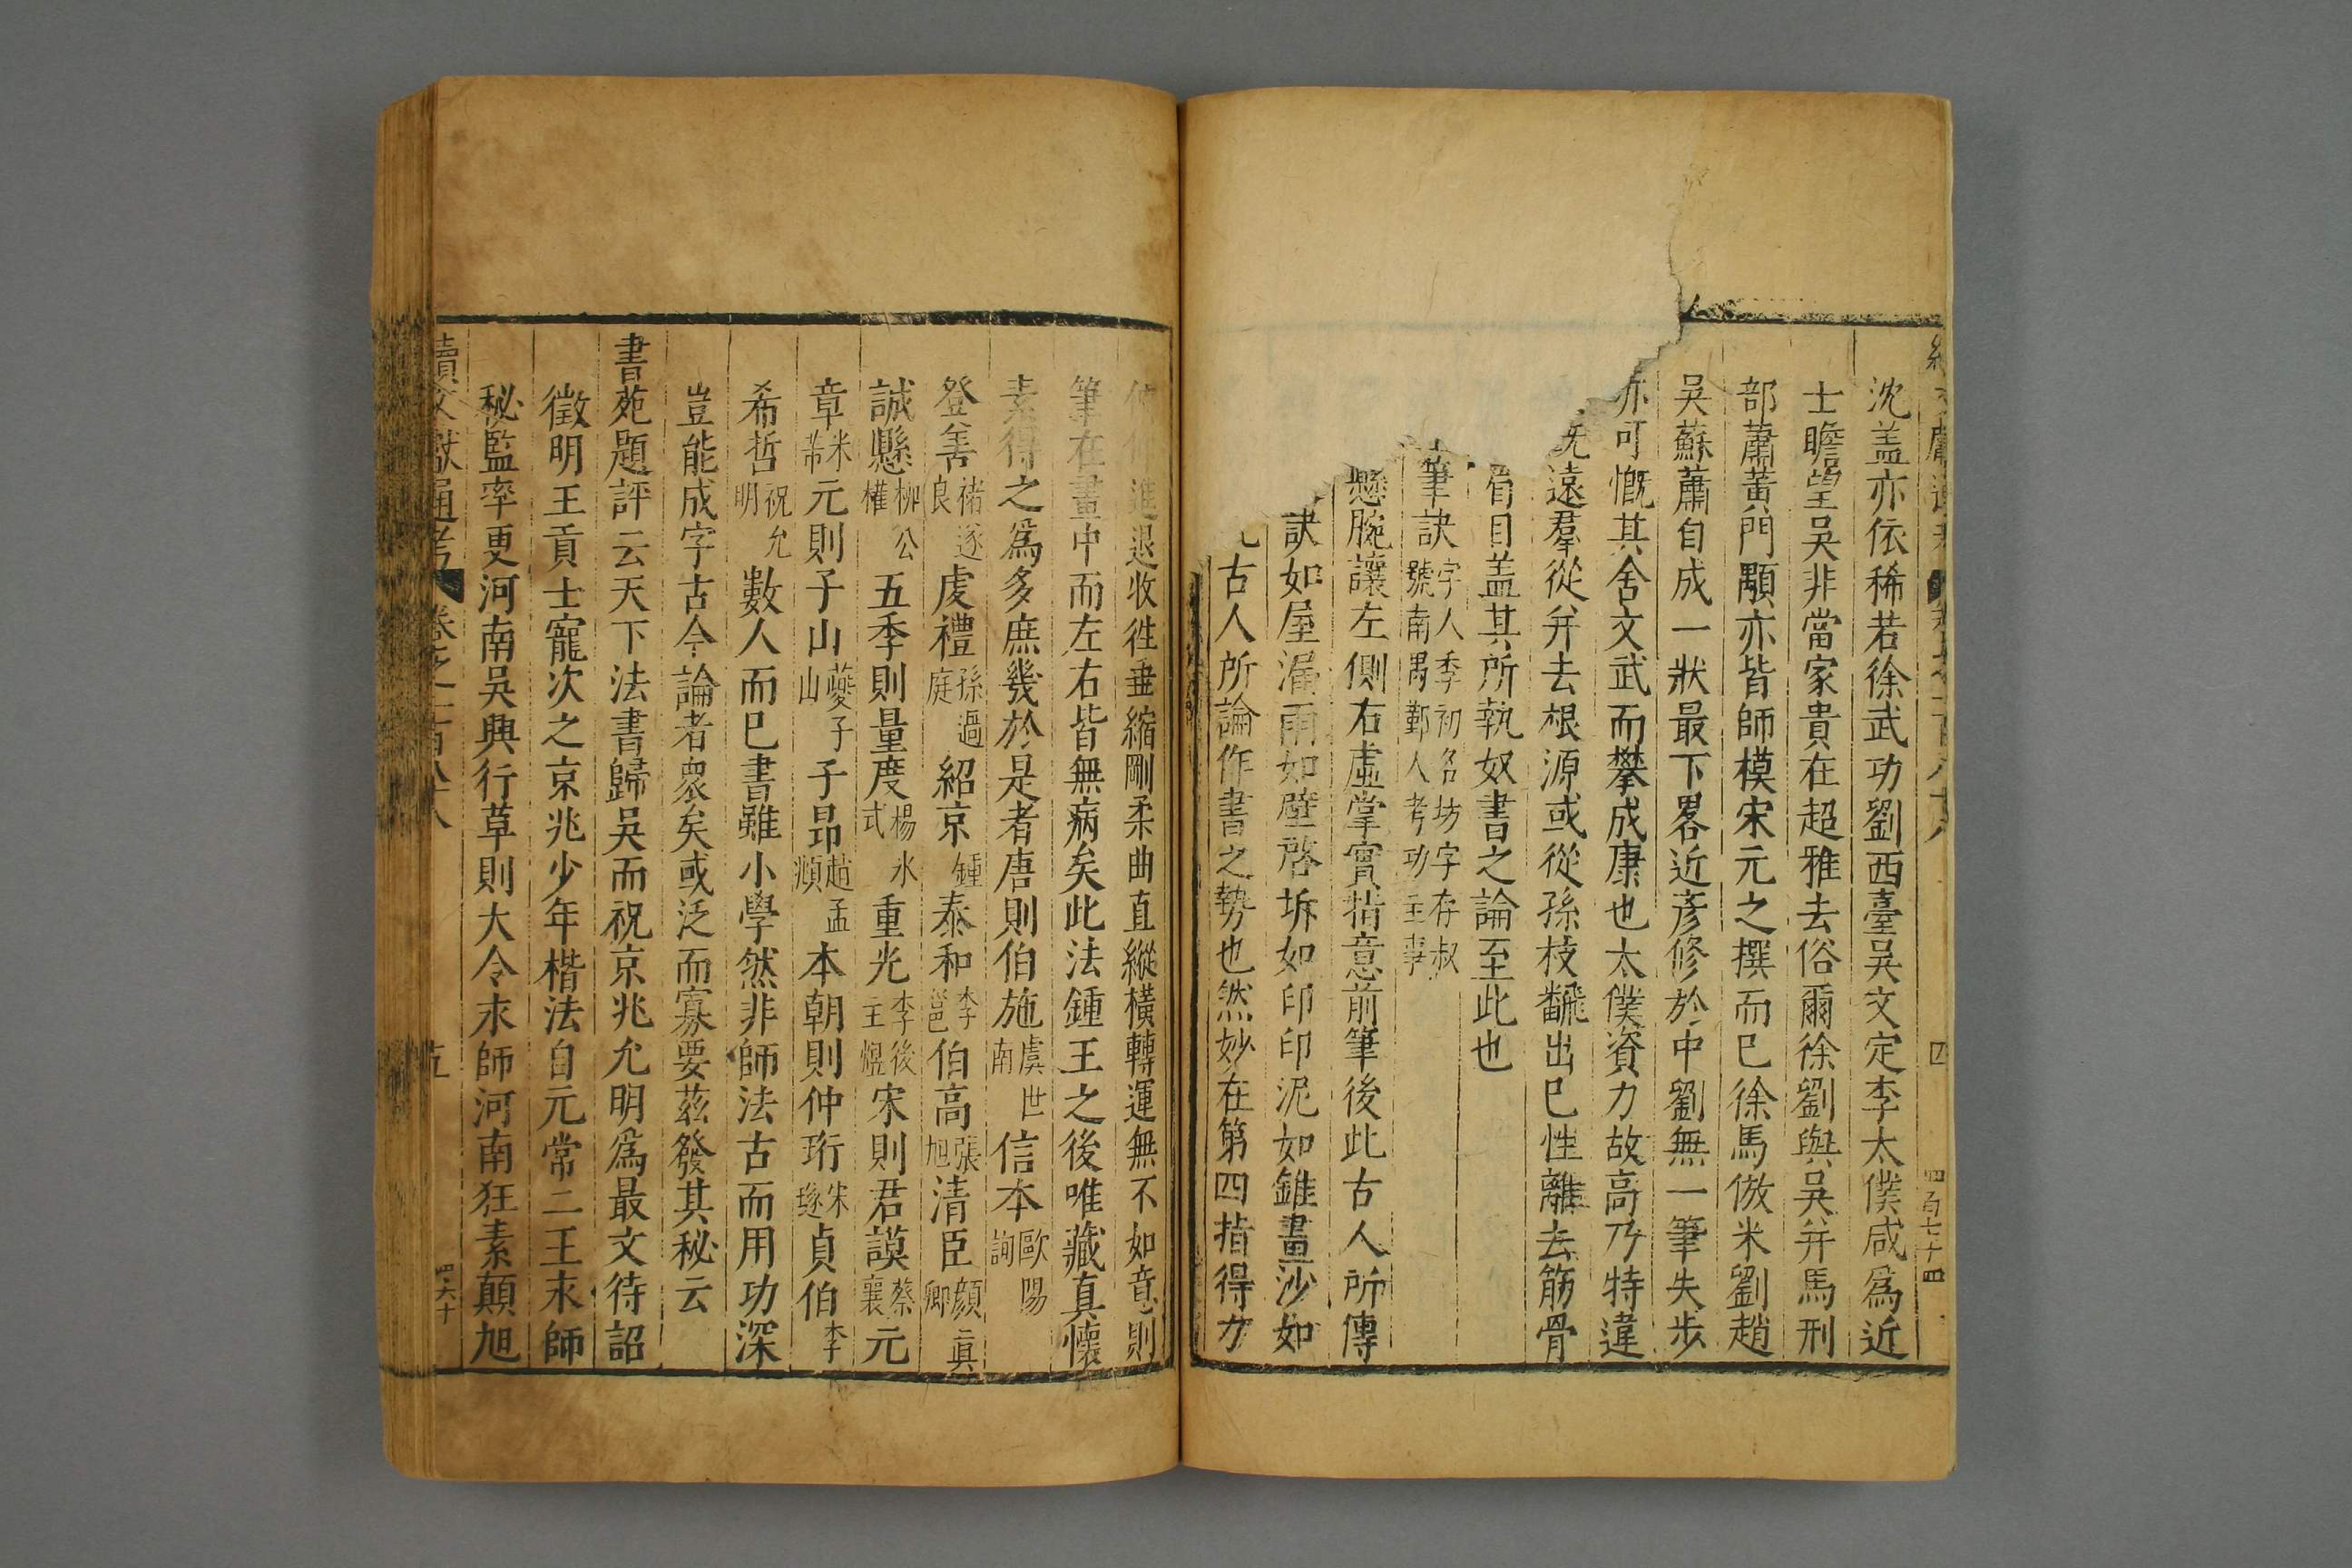 沈盖亦依稀若徐武功劉西臺吳文定李太僕咸爲近
士瞻望吳非當家貴在超雅去俗爾徐劉與吳并馬刑
部蕭黃門顒亦皆師模宋元之撰而已徐馬倣米劉趙
吳蘇蕭自成一狀最下畧近彦修於中劉無一筆失步
亦可慨其舍文武而攀成康也太僕資力故高乃特違
旣遠羣從并去根源或從孫枝飜出己性離去筋骨
眉目盖其所執奴書之論至此也
筆訣字人季初名坊字存叔
號南禺鄞人考功主事
懸腕讓左側右虛掌實指意前筆後此古人所傳
訣如屋漏雨如壁啓坼如印印泥如錐畫沙如
古人所論作書之勢也然妙在第四指得力
四
四百七十四
進退收徃垂縮剛柔曲直縱橫轉運無不如意則
筆在畫中而左右皆無病矣此法鍾王之後唯藏真懷
素得之爲多庶幾於是者唐則伯施虞世南信本歐陽詢
登善禇遂良虔禮孫過庭紹京鍾泰和李邕伯高張旭清臣顔真卿
誠懸柳公權五季則量度楊氷式重光李後主煜宋則君謨蔡襄元
章米芾元則子山䕫子山子昂趙孟頫本朝則仲珩宋璲貞伯李
希哲祝允明數人而已書雖小學然非師法古而用功深
豈能成字古今論者衆矣或泛而寡要兹發其秘云
書苑題評云天下法書歸吳而祝京兆允明爲最文待詔
徵明王貢士寵次之京兆少年楷法自元常二王永師
秘監率更河南吳興行草則大令永師河南狂素顛旭
續文獻通考
卷之一百八十八
五
四六十